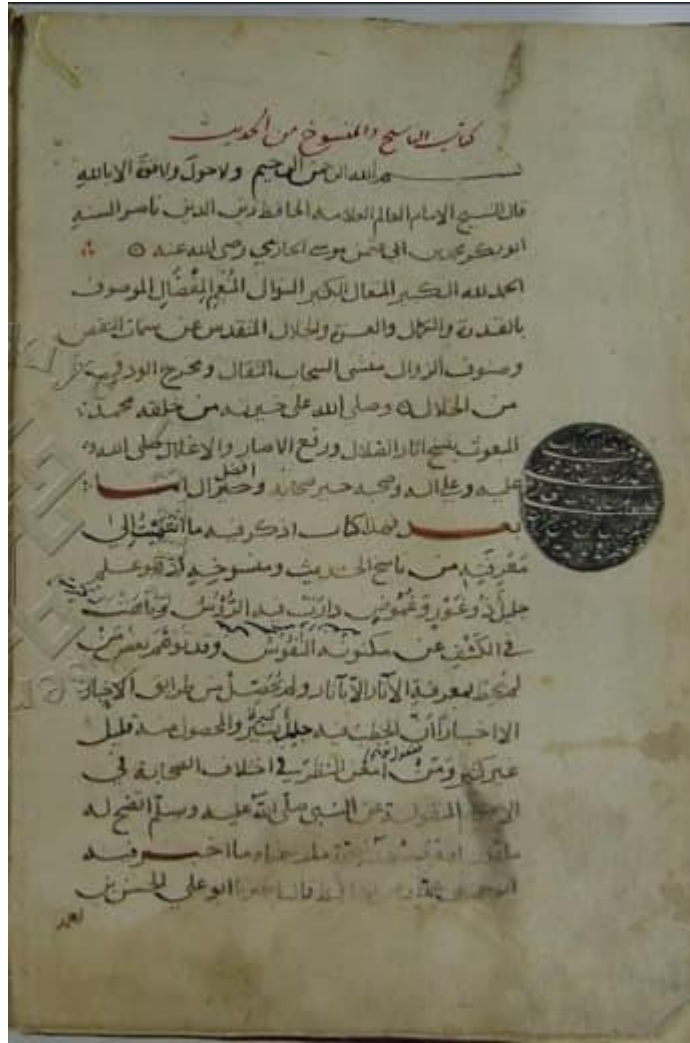 كتاب الناسخ والمنسوخ من الحديث
بسم الله الرحمن الرحيم ولا حول ولا قوة الا بالله
قال الشيخ الامام العالم العلامة الحافظ زين الدين ناصر السنة
ابو بكر محمد بن ابي عثمن موسى الحازمي رضي الله عنه
الحمد لله الكبير المتعال الكثير النوال المنعم المفضال الموصوف
بالقدرة والكمال والعزة والجلال المتقدس عن سمات النقص
وصنوف الزوال منشئ السحاب الثقال ومخرج الودق
من الخلال وصلى الله على خيرته من خلقه محمد
المبعوث بنسخ اثار الضلال ورفع الاصار والاغلال صلى الله
عليه وعلى اله وصحبه خير صحاب وافضل ال اما
بعد فهذا كتاب اذكر فيه ما انتهيت الى
معرفته من ناسخ الحديث ومنسوخه اذ هو علم
جليل ذو غور وغموض دارت فيه الرؤس وتاهت
في الكشف عن مكنونه النفوس وقد توهم بعض من
لم يحظ بمعرفة الاثار الا باثار ولم يحصل من طرايق الاخبار
الا اخبارا ان الخطب فيه جليل يسير والمحصول منه قليل
غير كثير ومن امعن النظر في اختلاف الصحابة في
المنقولة عن النبي صلى الله عليه وسلم اتضح له
ما اخبر فيه
ابو علي الحسن بن